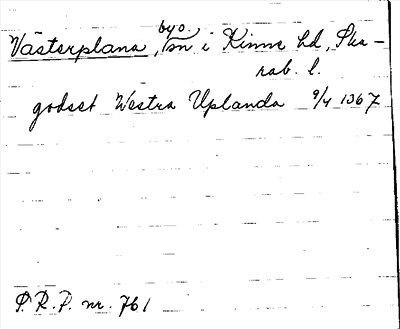 Västerplana, byo. sn i Kinne hd, Ska-
rab. l.
godset Westra Uplanda 9/4 1367
S.R.P. nr. 761